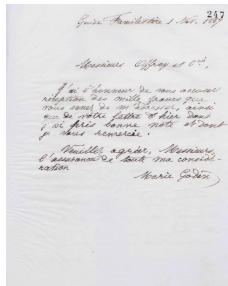 247
Guise Familistère 1 Nov. 1889
Messieurs Offroy et Cie,
J'ai l'honneur de vous accuser
réception des mille francs que
vous venez de m'adresser, ainsi
que de votre lettre d'hier dont
j'ai pris bonne note et dont
je vous remercie.
Veuillez agréer, Messieurs,
l'assurance de toute ma considé-
ration
Marie Godin